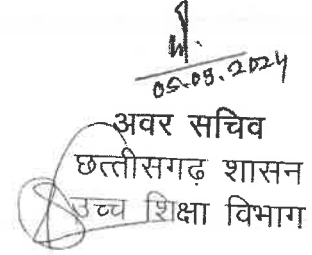 05.09.2024
अवर सचिव
छत्तीसगढ़ शासन
उच्च शिक्षा विभाग